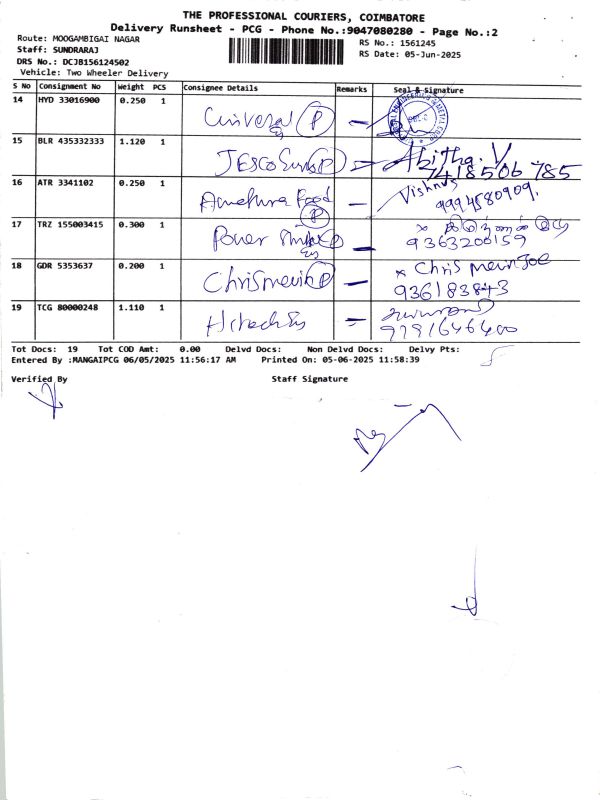 THE PROFESSIONAL COURIERS, COIMBATORE
Delivery Runsheet - PCG - Phone No.:9047080280 - Page No.:2
Route: MOOGAMBIGAI NAGAR
RS No.: 1561245
Staff: SUNDRARAJ
RS Date: 05-Jun-2025
DRS No.: DCJB156124502
Vehicle: Two Wheeler Delivery
S No Consignment No Weight PCS Consignee Details Remarks Seal & Signature
14 HYD 33016900 0.250 1 Universal P –
15 BLR 435332333 1.120 1 JESCO P – Abitha.V
7418506 785
16 ATR 3341102 0.250 1 Food P – Vishnu
9994580909.
17 TRZ 155003415 0.300 1 Power P – x
9363200159
18 GDR 5353637 0.200 1 Chrismerin P – x Chris merin Joe
936183843
19 TCG 80000248 1.110 1 Hitech –
9791646400
Tot Docs: 19 Tot COD Amt: 0.00 Delvd Docs: Non Delvd Docs: Delvy Pts:
Entered By :MANGAIPCG 06/05/2025 11:56:17 AM Printed On: 05-06-2025 11:58:39
Verified By Staff Signature